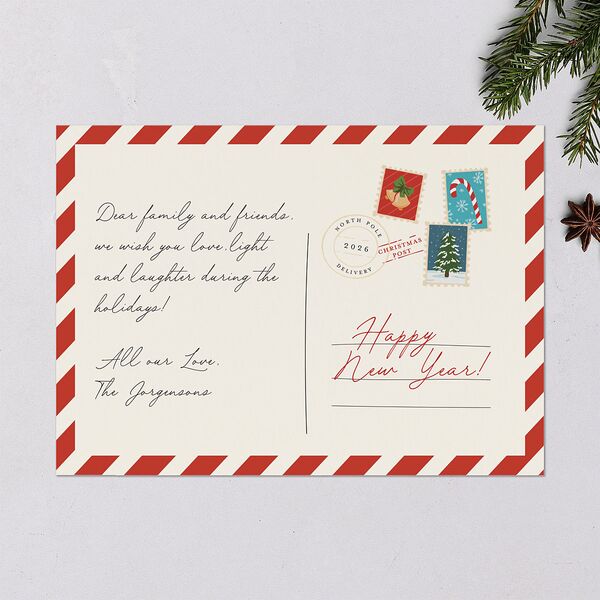 Dear family and friends,
we wish you love, light
and laughter during the
holidays!
All our Love,
The Jorgensons
NORTH POLE
2026
DELIVERY
CHRISTMAS
POST
Happy
New Year!